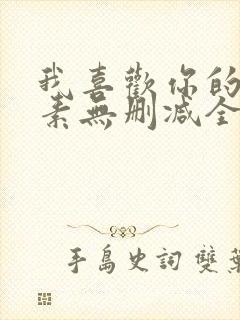 我喜歡你的
素無刪減全
手島史詞 雙葉